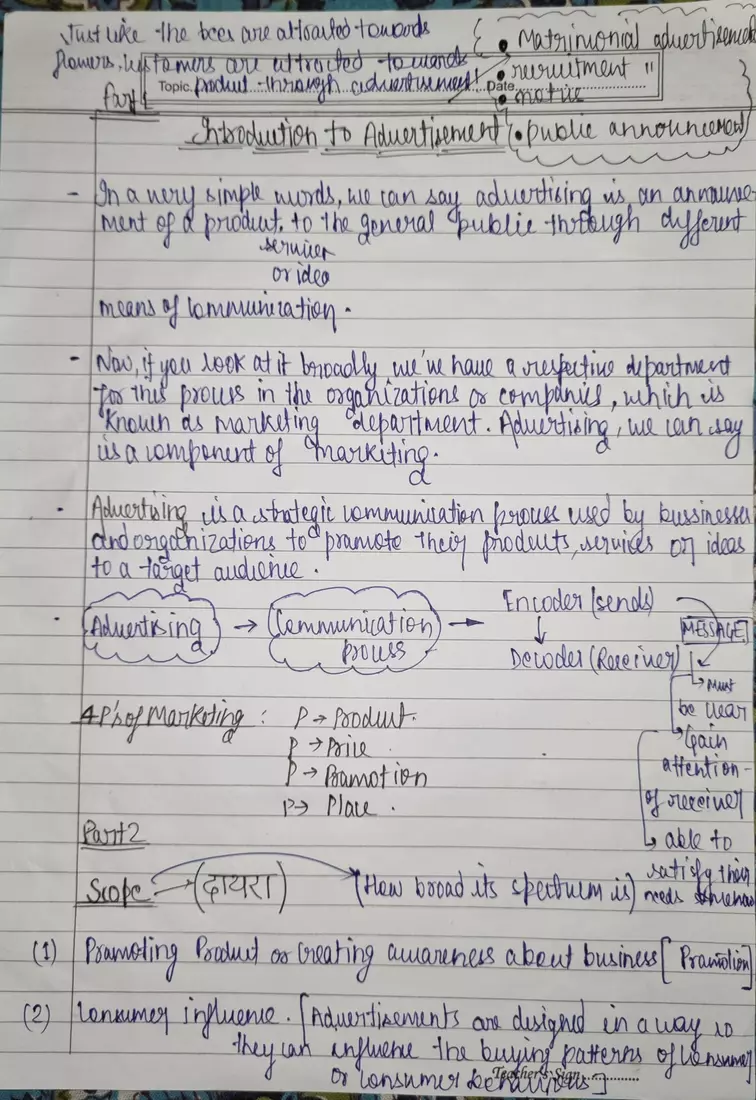 Just like the bees are attracted towards
flowers, customers are attracted towards
Topic product through advertisement
Date
• Matrimonial advertisement
• recruitment "
• notice
• public announcement
Part 1
Introduction to Advertisement
- In a very simple words, we can say advertising is an announce-
ment of a product, to the general public through different
service
or idea
means of communication.
- Now, if you look at it broadly we've have a respective department
for this process in the organizations or companies, which is
known as marketing department. Advertising, we can say
is a component of markiting.
• Advertising is a strategic communication process used by bussinesses
and organizations to pramote their products, services or ideas
to a target audience.
• Advertising → Communication process → Encoder (sends)
↓
Decoder (Receiver)
MESSAGE
↳ Must
be clear
↳ Gain
attention-
of receiver
↳ able to
satisfy their
needs
4 P's of Marketing : P → Product.
P → Price.
P → Pramotion
P → Place.
Part 2
Scope → (दायरा) (How broad its spectrum is)
(1) Pramoting Product or Creating awareness about business [Pramotion]
(2) Consumer influence. [Advertisements are designed in a way so
they can influence the buying patterns of consumer
or consumer behaviours]
Teacher's Sign